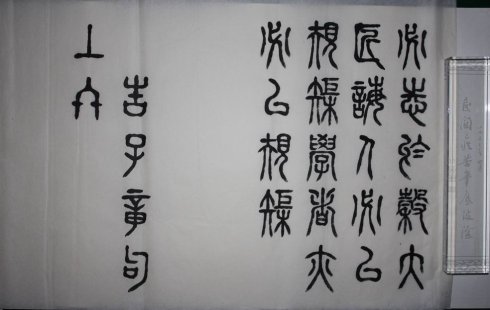 必志於彀大
匠誨人必以
規矩學者亦
必以規矩
告子章句
上